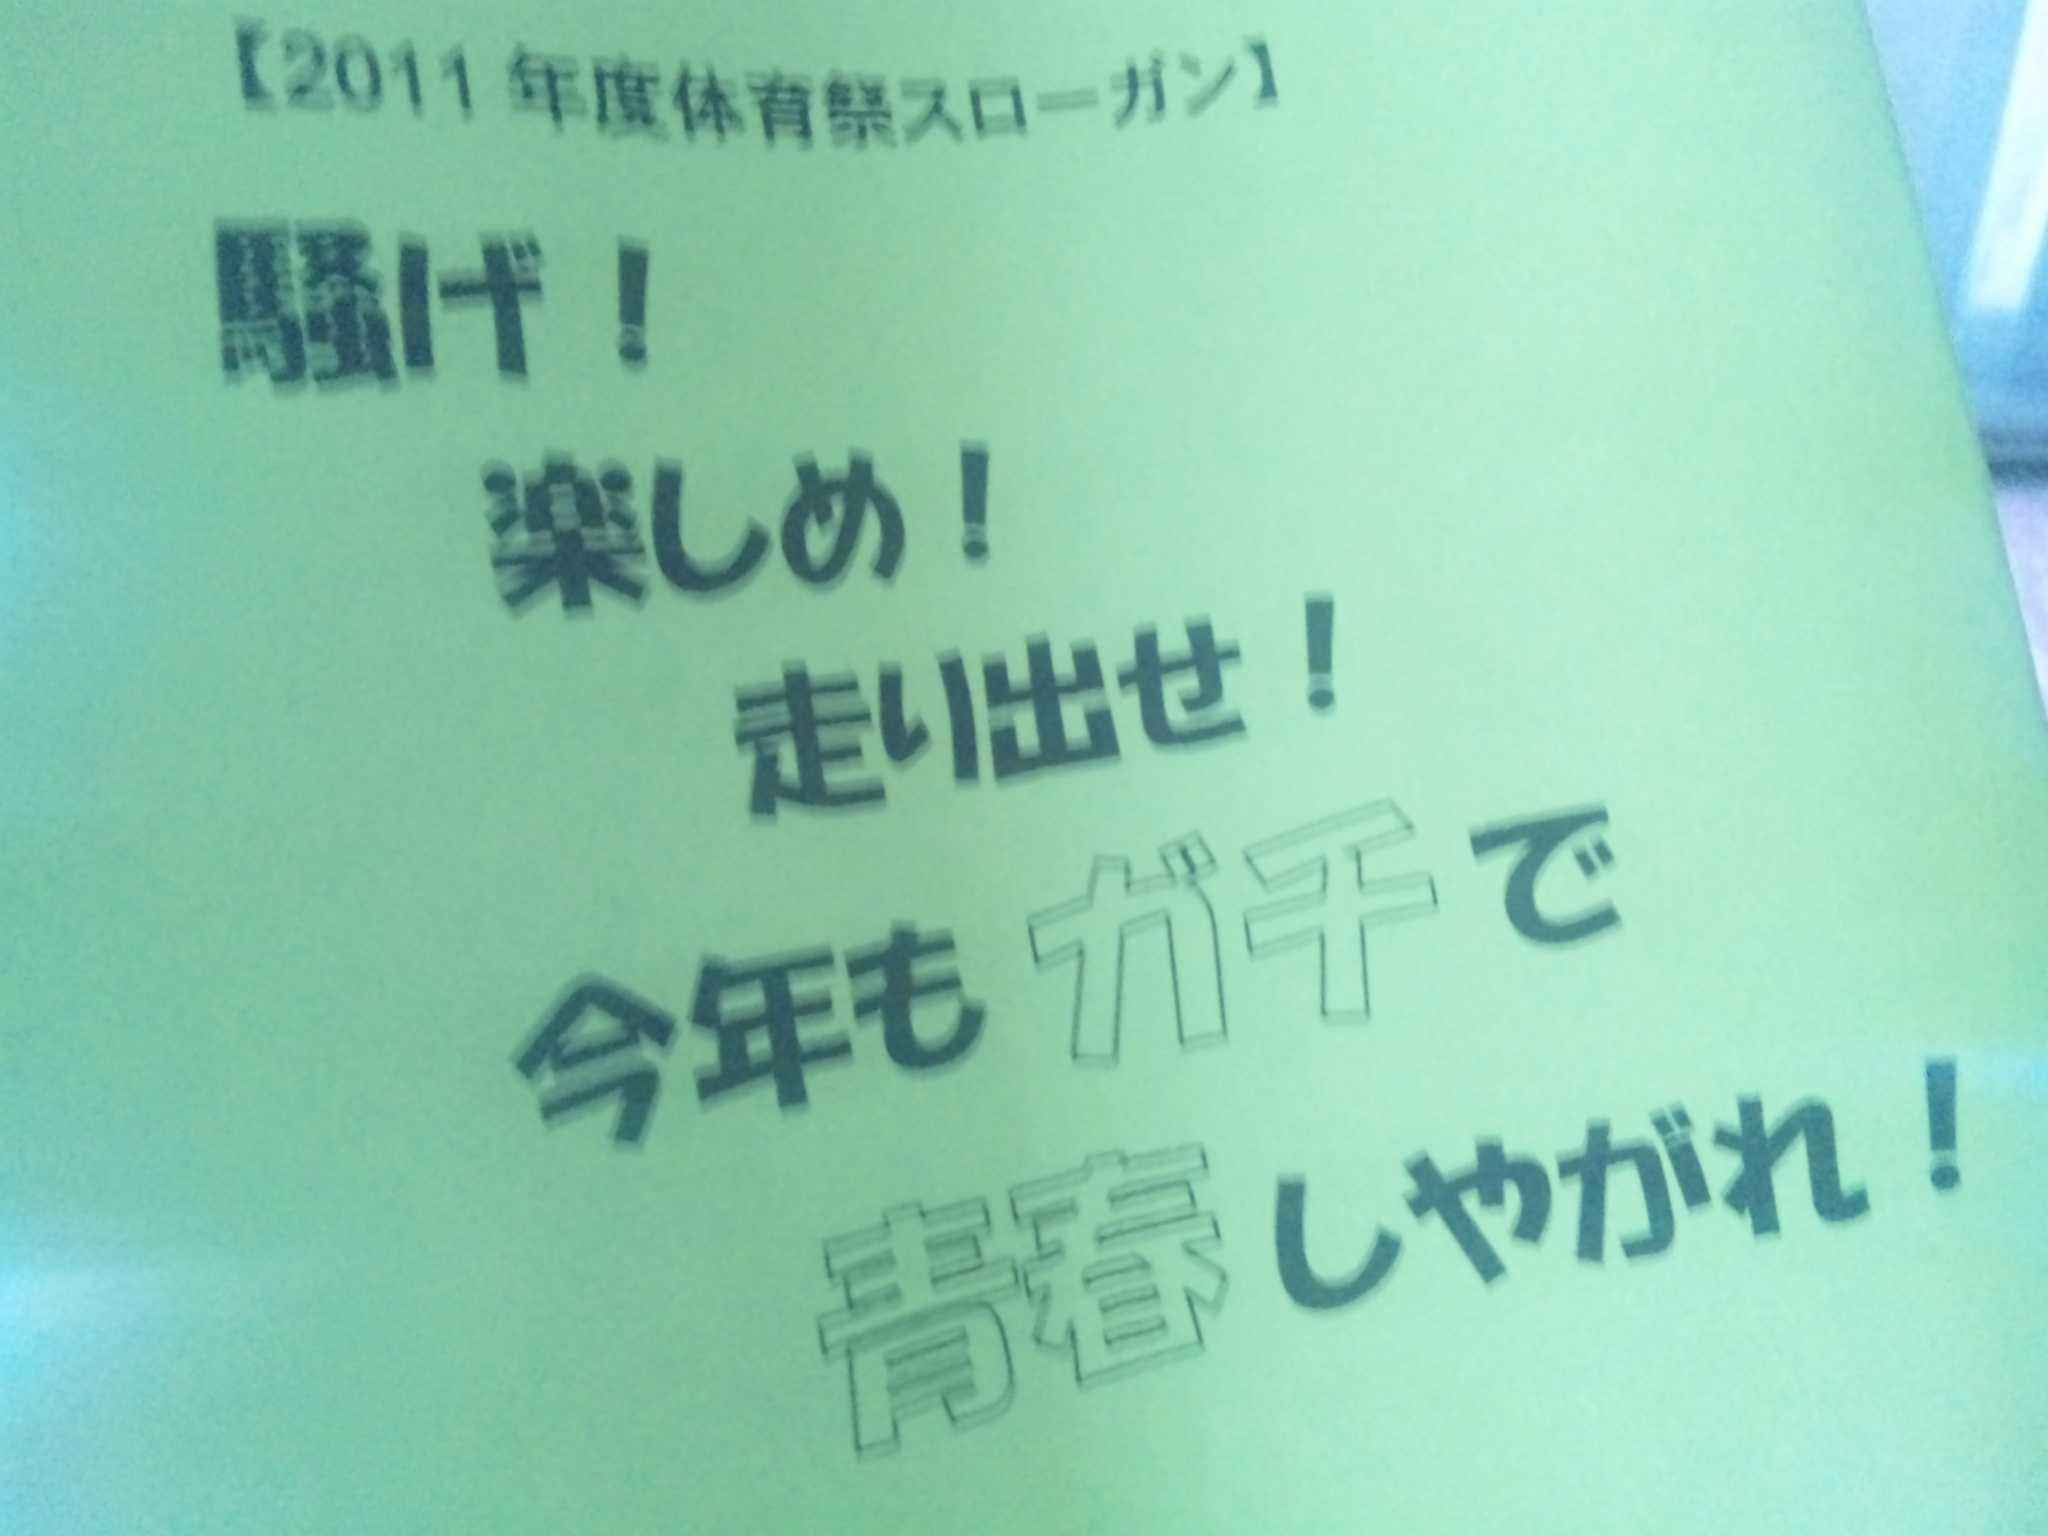 【2011年度体育祭スローガン】
騒げ！
楽しめ！
走り出せ！
今年もガチで
青春しやがれ！